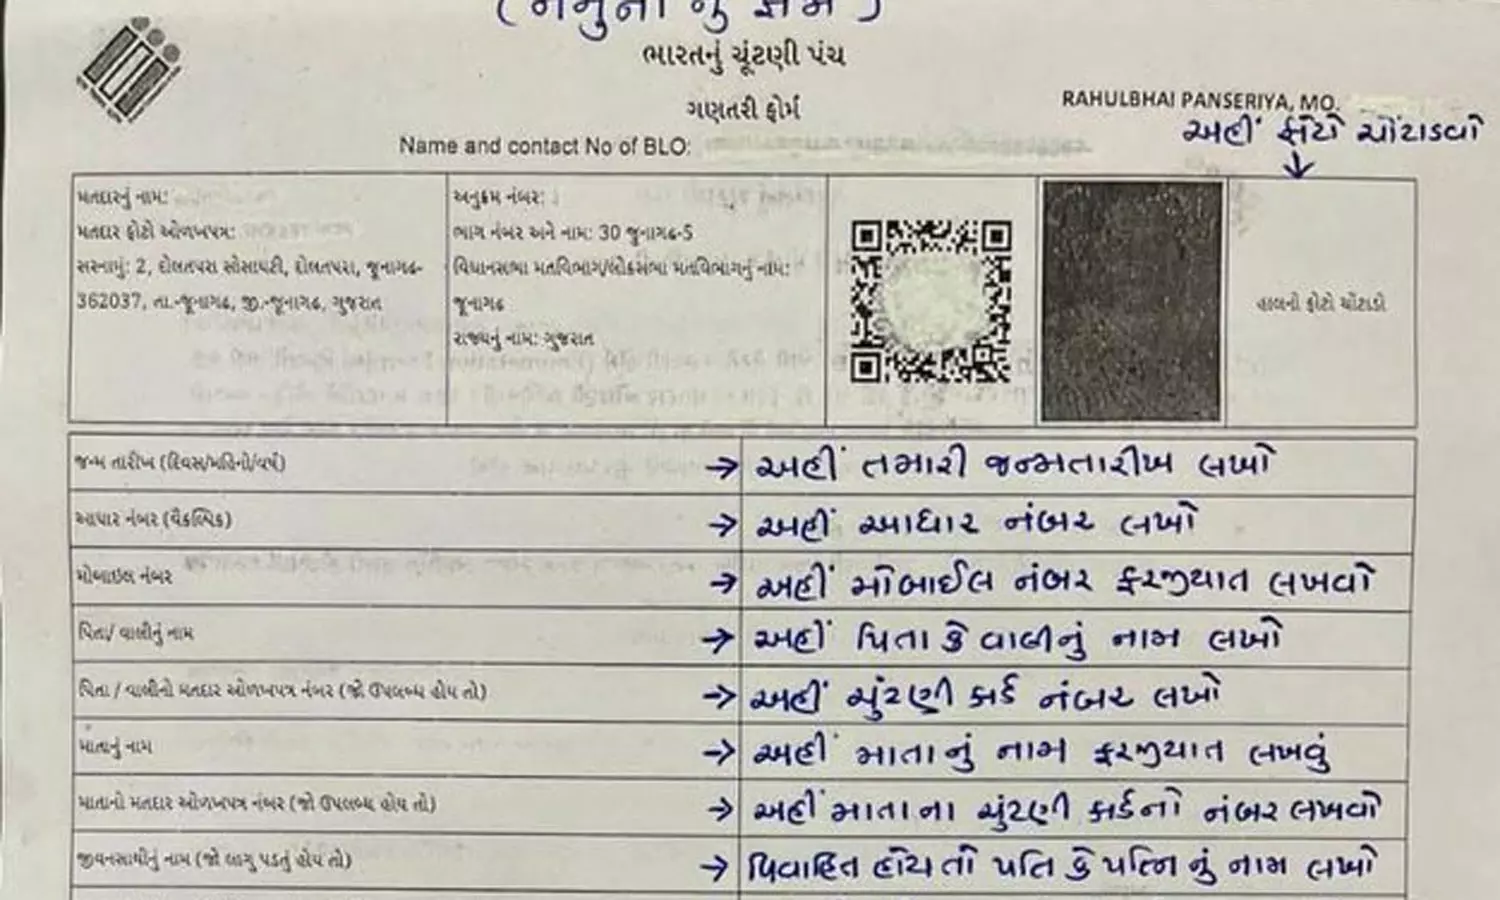 (નમુના નું ફોર્મ)
ભારતનું ચૂંટણી પંચ
ગણતરી ફોર્મ
RAHULBHAI PANSERIYA, MO.
અહીં ફોટો ચોંટાડવો
Name and contact No of BLO:
મતદારનું નામ:
મતદાર ફોટો ઓળખપત્ર:
સરનામું: 2, દોલતપરા સોસાયટી, દોલતપરા, જૂનાગઢ-
362037, તા.-જૂનાગઢ, જી.-જૂનાગઢ, ગુજરાત
અનુક્રમ નંબર:
ભાગ નંબર અને નામ: 30 જૂનાગઢ-5
વિધાનસભા મતવિભાગ/લોકસભા મતવિભાગનું નામ:
જૂનાગઢ
રાજ્યનું નામ: ગુજરાત
હાલનો ફોટો ચોંટાડો
જન્મ તારીખ (દિવસ/મહિનો/વર્ષ) → અહીં તમારી જન્મતારીખ લખો
આધાર નંબર (વૈકલ્પિક) → અહીં આધાર નંબર લખો
મોબાઇલ નંબર → અહીં મોબાઈલ નંબર ફરજીયાત લખવો
પિતા/ વાલીનું નામ → અહીં પિતા કે વાલીનું નામ લખો
પિતા / વાલીનો મતદાર ઓળખપત્ર નંબર (જો ઉપલબ્ધ હોય તો) → અહીં ચુંટણી કાર્ડ નંબર લખો
માતાનું નામ → અહીં માતાનું નામ ફરજીયાત લખવું
માતાનો મતદાર ઓળખપત્ર નંબર (જો ઉપલબ્ધ હોય તો) → અહીં માતાના ચુંટણી કાર્ડનો નંબર લખવો
જીવનસાથીનું નામ (જો લાગુ પડતું હોય તો) → વિવાહિત હોય તો પતિ કે પત્નિ નું નામ લખો